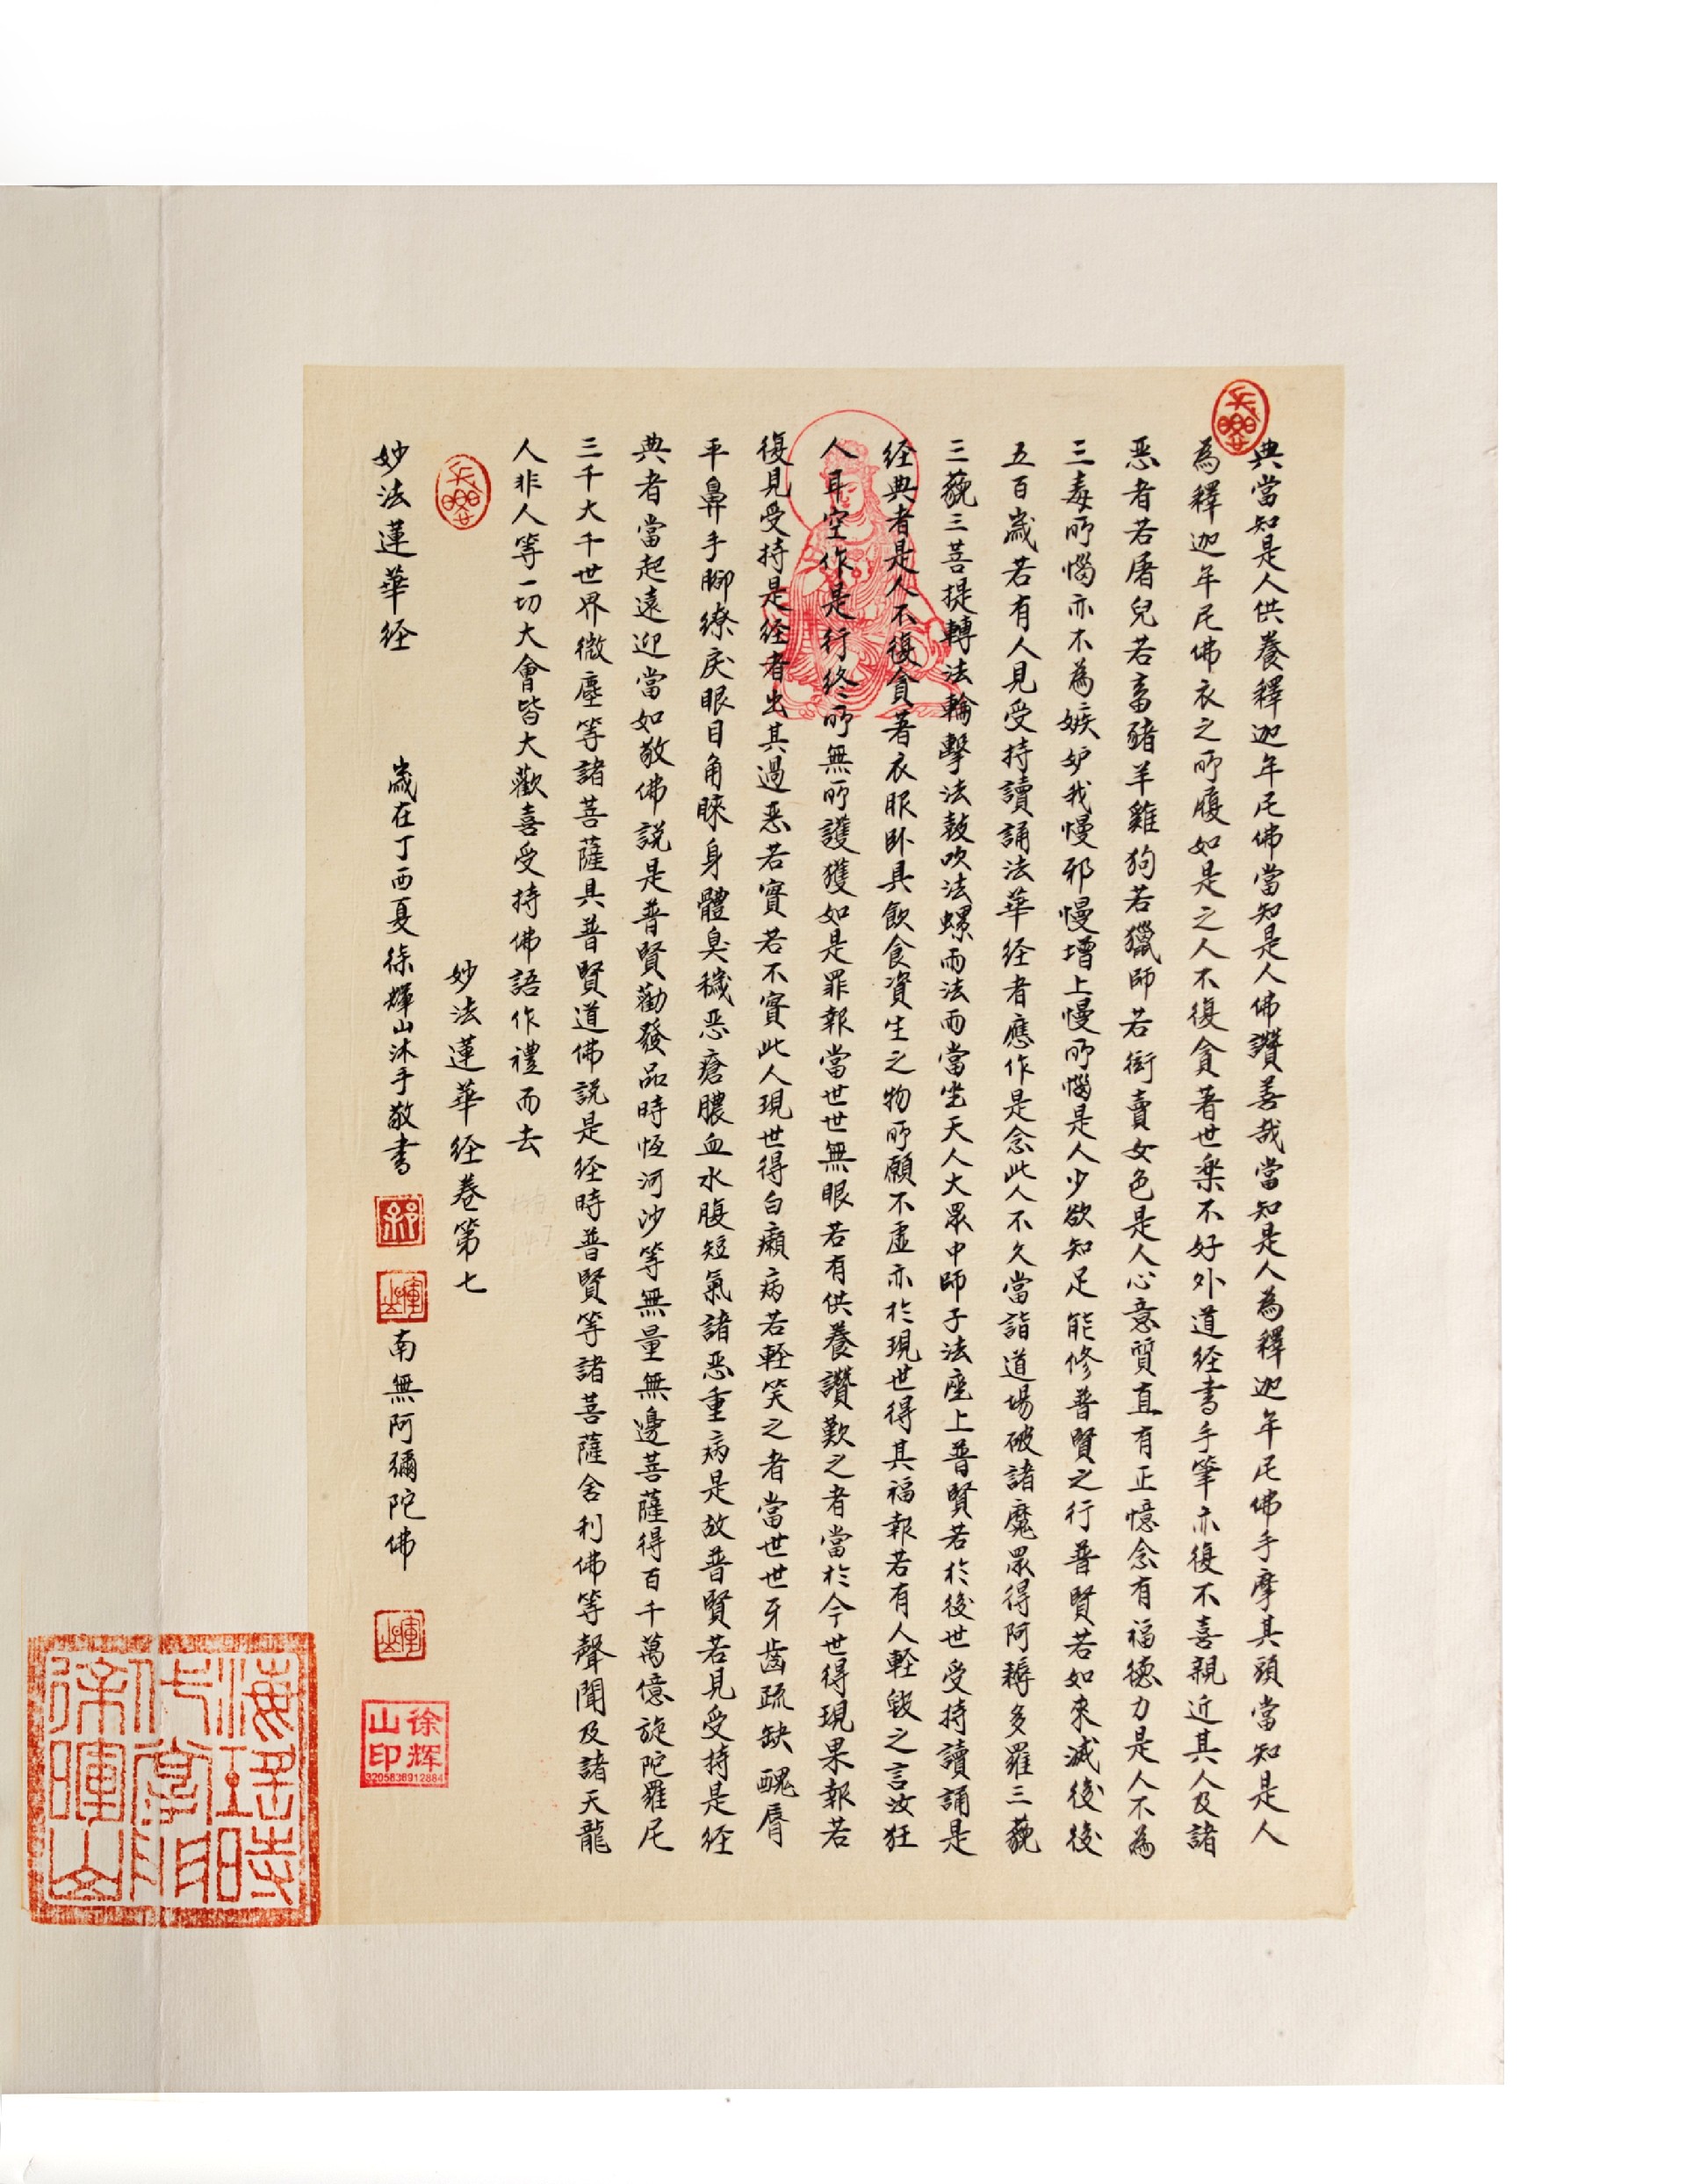 典當知是人供養釋迦牟尼佛當知是人佛讚善哉當知是人為釋迦牟尼佛手摩其頭當知是人
為釋迦牟尼佛衣之所覆如是之人不復貪著世樂不好外道経書手筆亦復不喜親近其人及諸
惡者若屠兒若畜豬羊雞狗若獵師若衒賣女色是人心意質直有正憶念有福德力是人不為
三毒所惱亦不為嫉妒我慢邪慢增上慢所惱是人少欲知足能修普賢之行普賢若如來滅後後
五百歲若有人見受持讀誦法華経者應作是念此人不久當詣道場破諸魔眾得阿耨多羅三藐
三藐三菩提轉法輪擊法鼓吹法螺雨法雨當坐天人大眾中師子法座上普賢若於後世受持讀誦是
経典者是人不復貪著衣服臥具飲食資生之物所願不虛亦於現世得其福報若有人軽毀之言汝狂
人耳空作是行終所無所護獲如是罪報當世世無眼若有供養讚歎之者當於今世得現果報若
復見受持是経者出其過惡若實若不實此人現世得白癩病若軽笑之者當世世牙齒疏缺醜脣
平鼻手腳繚戾眼目角睞身體臭穢惡瘡膿血水腹短氣諸惡重病是故普賢若見受持是経
典者當起遠迎當如敬佛説是普賢勸發品時恆河沙等無量無邊菩薩得百千萬億旋陀羅尼
三千大千世界微塵等諸菩薩具普賢道佛説是経時普賢等諸菩薩舍利佛等聲聞及諸天龍
人非人等一切大會皆大歡喜受持佛語作禮而去
妙法蓮華経卷第七
妙法蓮華経
歲在丁酉夏徐輝山沐手敬書
南無阿彌陀佛
徐辉
山印
3205838912884